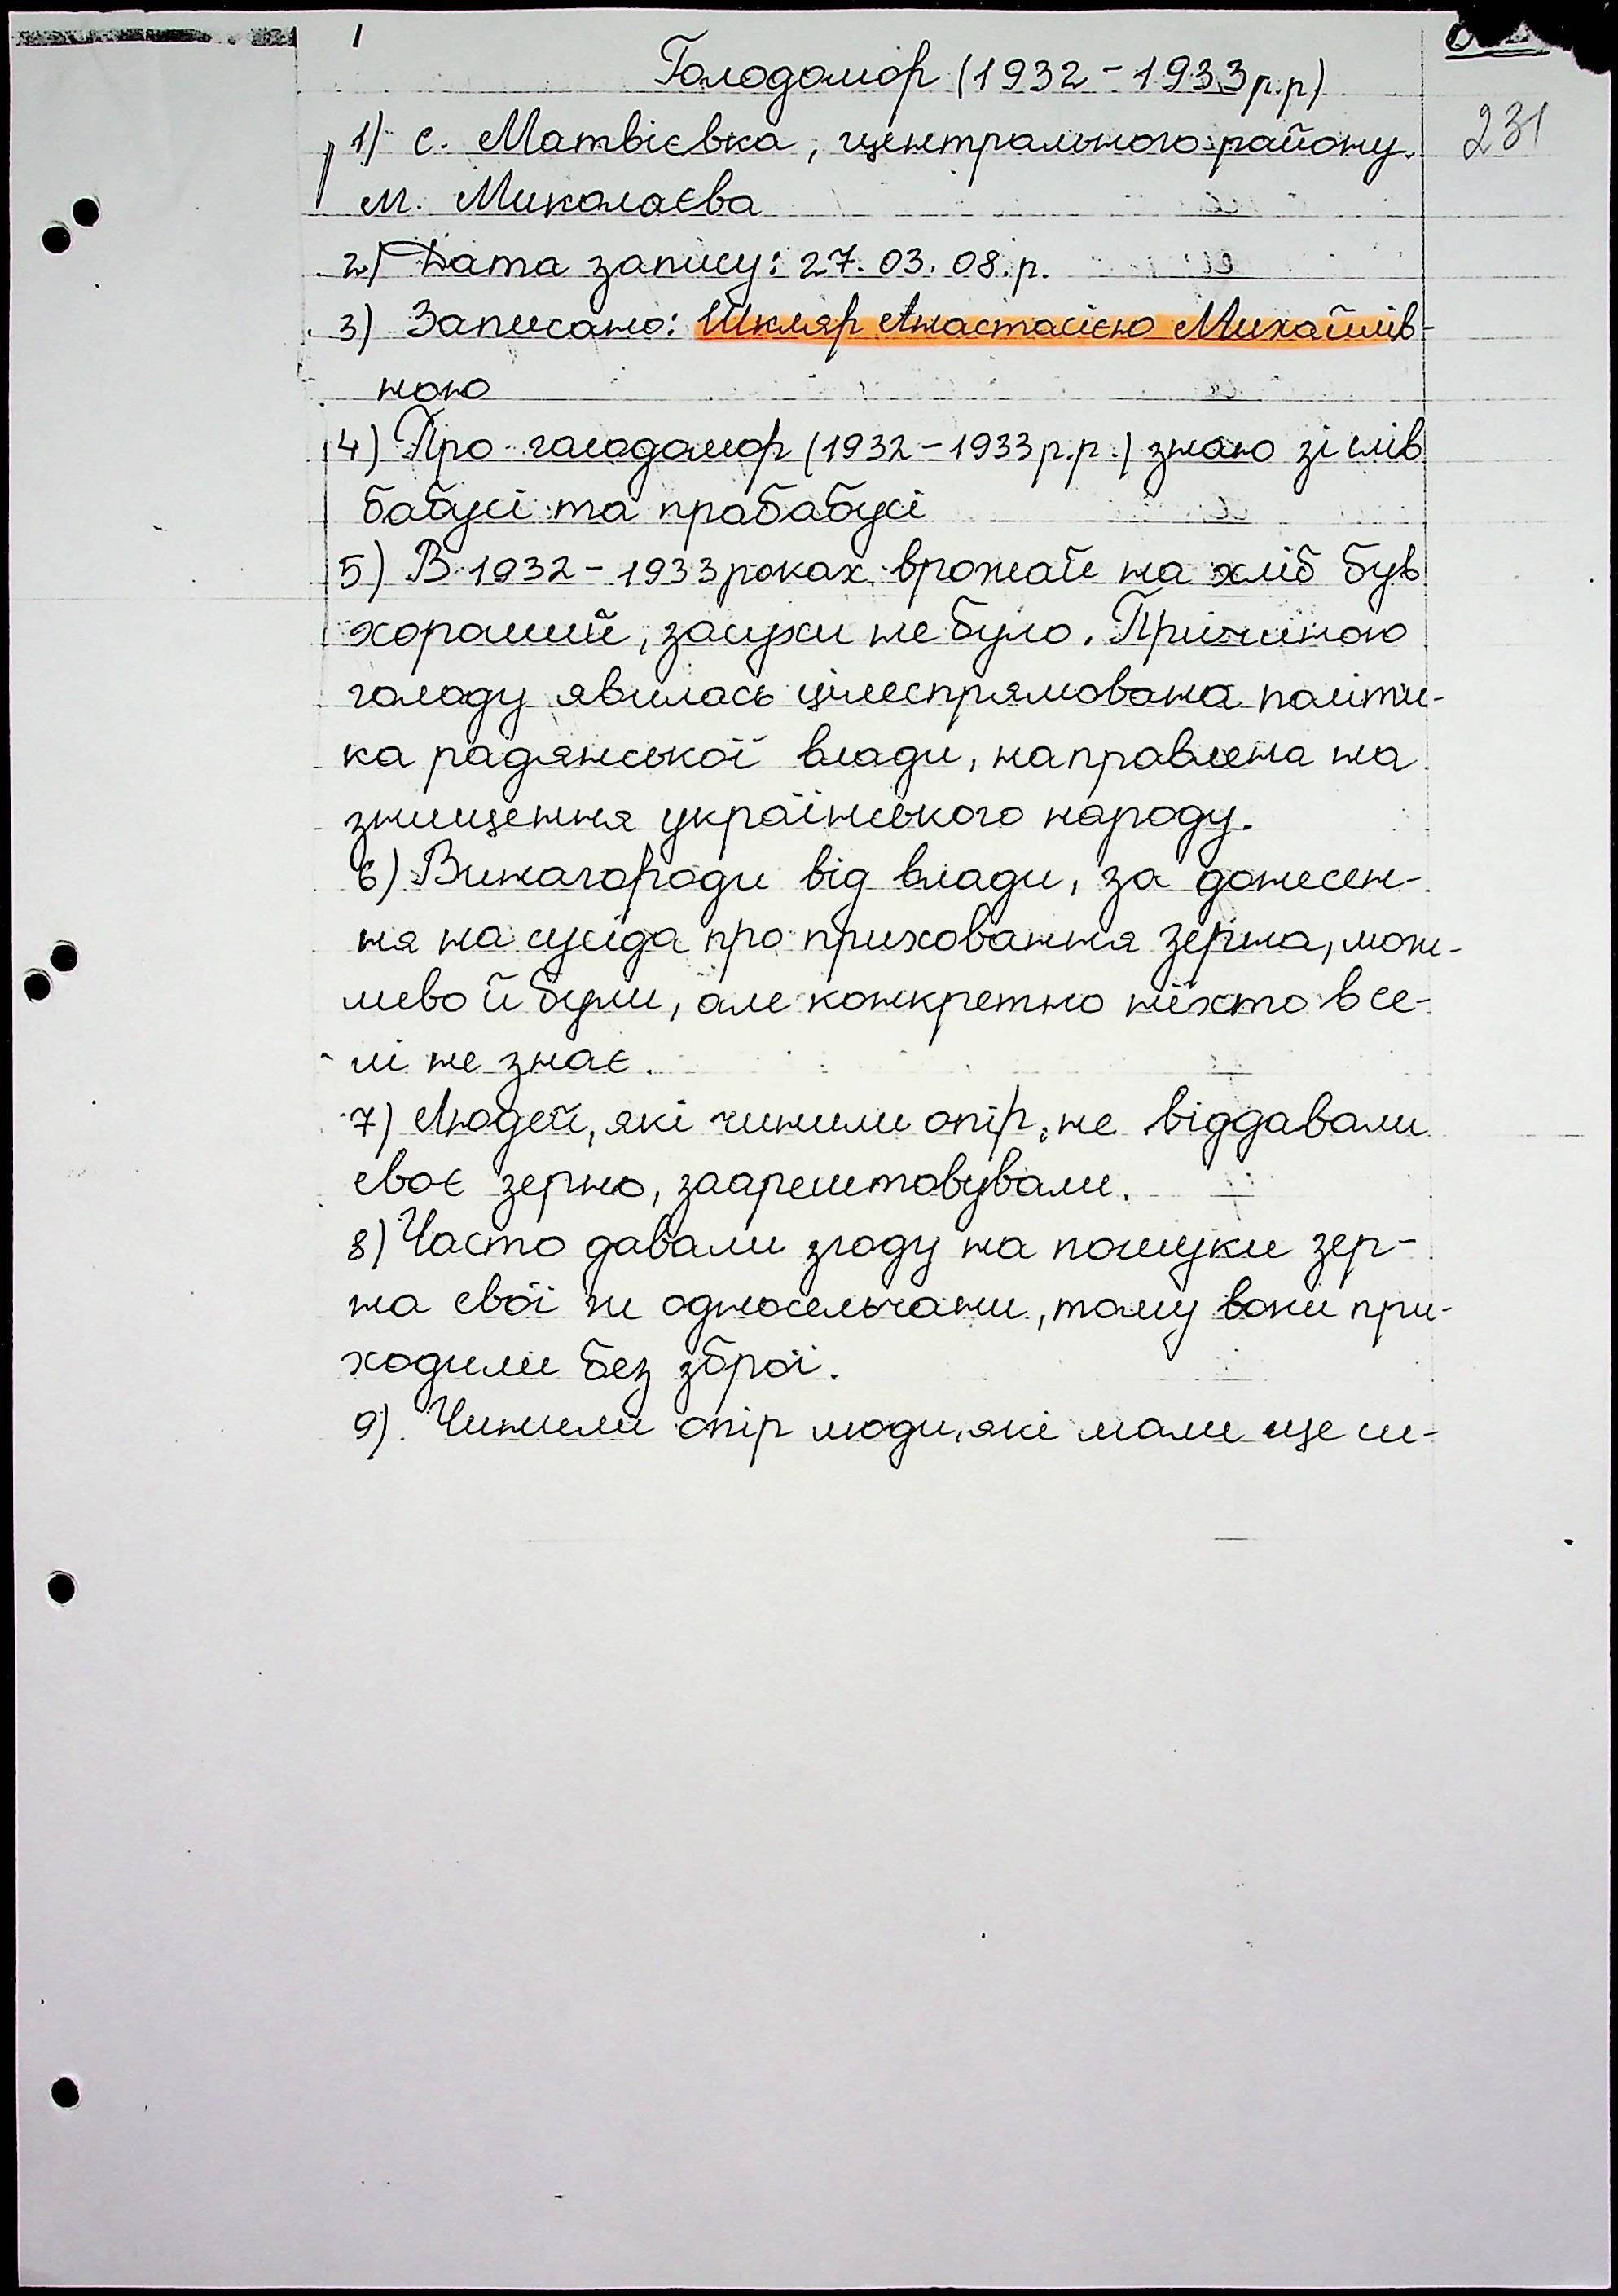 1
Голодомор (1932 - 1933 р.р)
231
1) с. Матвієвка, центрального району.
м. Миколаєва
2) Дата запису: 27. 03. 08. р.
3) Записано: Шкляр Анастасією Михайлів-
ною
4) Про голодомор (1932 - 1933 р.р.) знаю зі слів
бабусі та прабабусі
5) В 1932 - 1933 роках врожай на хліб був
хороший, засухи не було. Причиною
голоду явилась цілеспрямована політи-
ка радянської влади, направлена на
знищення українського народу.
6) Винагороди від влади, за донесен-
ня на сусіда про приховання зерна, мож-
ливо й були, але конкретно ніхто в се-
лі не знає.
7) Людей, які чинили опір, не віддавали
своє зерно, заарештовували.
8) Часто давали згоду на пошуки зер-
на свої ж односельчани, тому вони при-
ходили без зброї.
9). Чинили опір люди, які мали ще си-